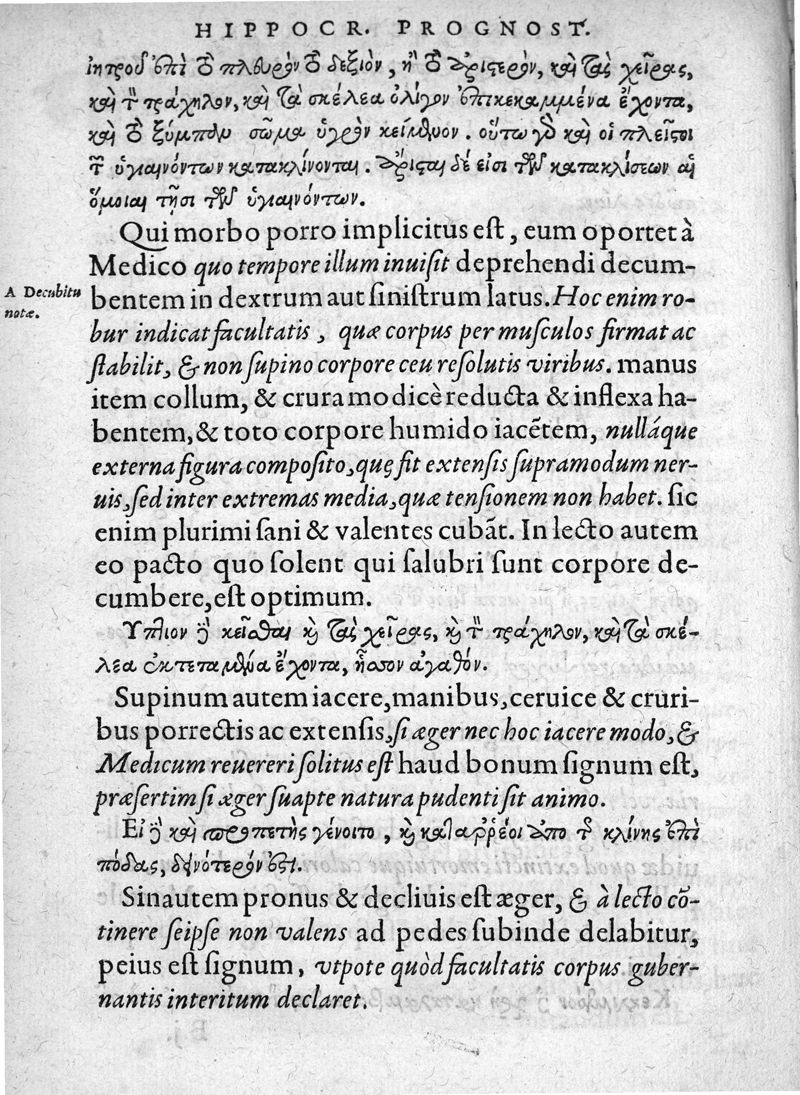 HIPPOCR. PROGNOST.
ἰητροῦ ἐπὶ τὸ πλευρὸν τὸ δεξιὸν, ἢ τὸ ἀριστερὸν, καὶ τὰς χεῖρας,
καὶ τὸν τράχηλον, καὶ τὰ σκέλεα ὀλίγον ἐπικεκαμμένα ἔχοντα,
καὶ τὸ ξύμπαν σῶμα ὑγρὸν κείμενον. οὕτω γὰρ καὶ οἱ πλεῖστοι
τῶν ὑγιαινόντων κατακλίνονται. ἄρισται δέ εἰσι τῶν κατακλίσεων αἱ
ὅμοιαι τῇσι τῶν ὑγιαινόντων.
Qui morbo porro implicitus est, eum oportet à
Medico quo tempore illum inuisit deprehendi decum-
A Decubitu
notæ.
bentem in dextrum aut sinistrum latus. Hoc enim ro-
bur indicat facultatis, quæ corpus per musculos firmat ac
stabilit, & non supino corpore ceu resolutis viribus. manus
item collum, & crura modicè reducta & inflexa ha-
bentem, & toto corpore humido iacẽtem, nulláque
externa figura composito, quę fit extensis supramodum ner-
uis, sed inter extremas media, quæ tensionem non habet. sic
enim plurimi sani & valentes cubãt. In lecto autem
eo pacto quo solent qui salubri sunt corpore de-
cumbere, est optimum.
Υπτιον δὲ κεῖσθαι καὶ τὰς χεῖρας, καὶ τὸν τράχηλον, καὶ τὰ σκέ-
λεα ἐκτεταμένα ἔχοντα, ἧσσον ἀγαθόν.
Supinum autem iacere, manibus, ceruice & cruri-
bus porrectis ac extensis, si æger nec hoc iacere modo, &
Medicum reuereri solitus est haud bonum signum est,
præsertim si æger suapte natura pudenti sit animo.
Εἰ δὲ καὶ προπετὴς γένοιτο, καὶ καταῤῥέοι ἀπὸ τῆς κλίνης ἐπὶ
πόδας, δεινότερόν ἐστι.
Sin autem pronus & decliuis est æger, & à lecto cõ-
tinere seipse non valens ad pedes subinde delabitur,
peius est signum, vtpote quòd facultatis corpus guber-
nantis interitum declaret.